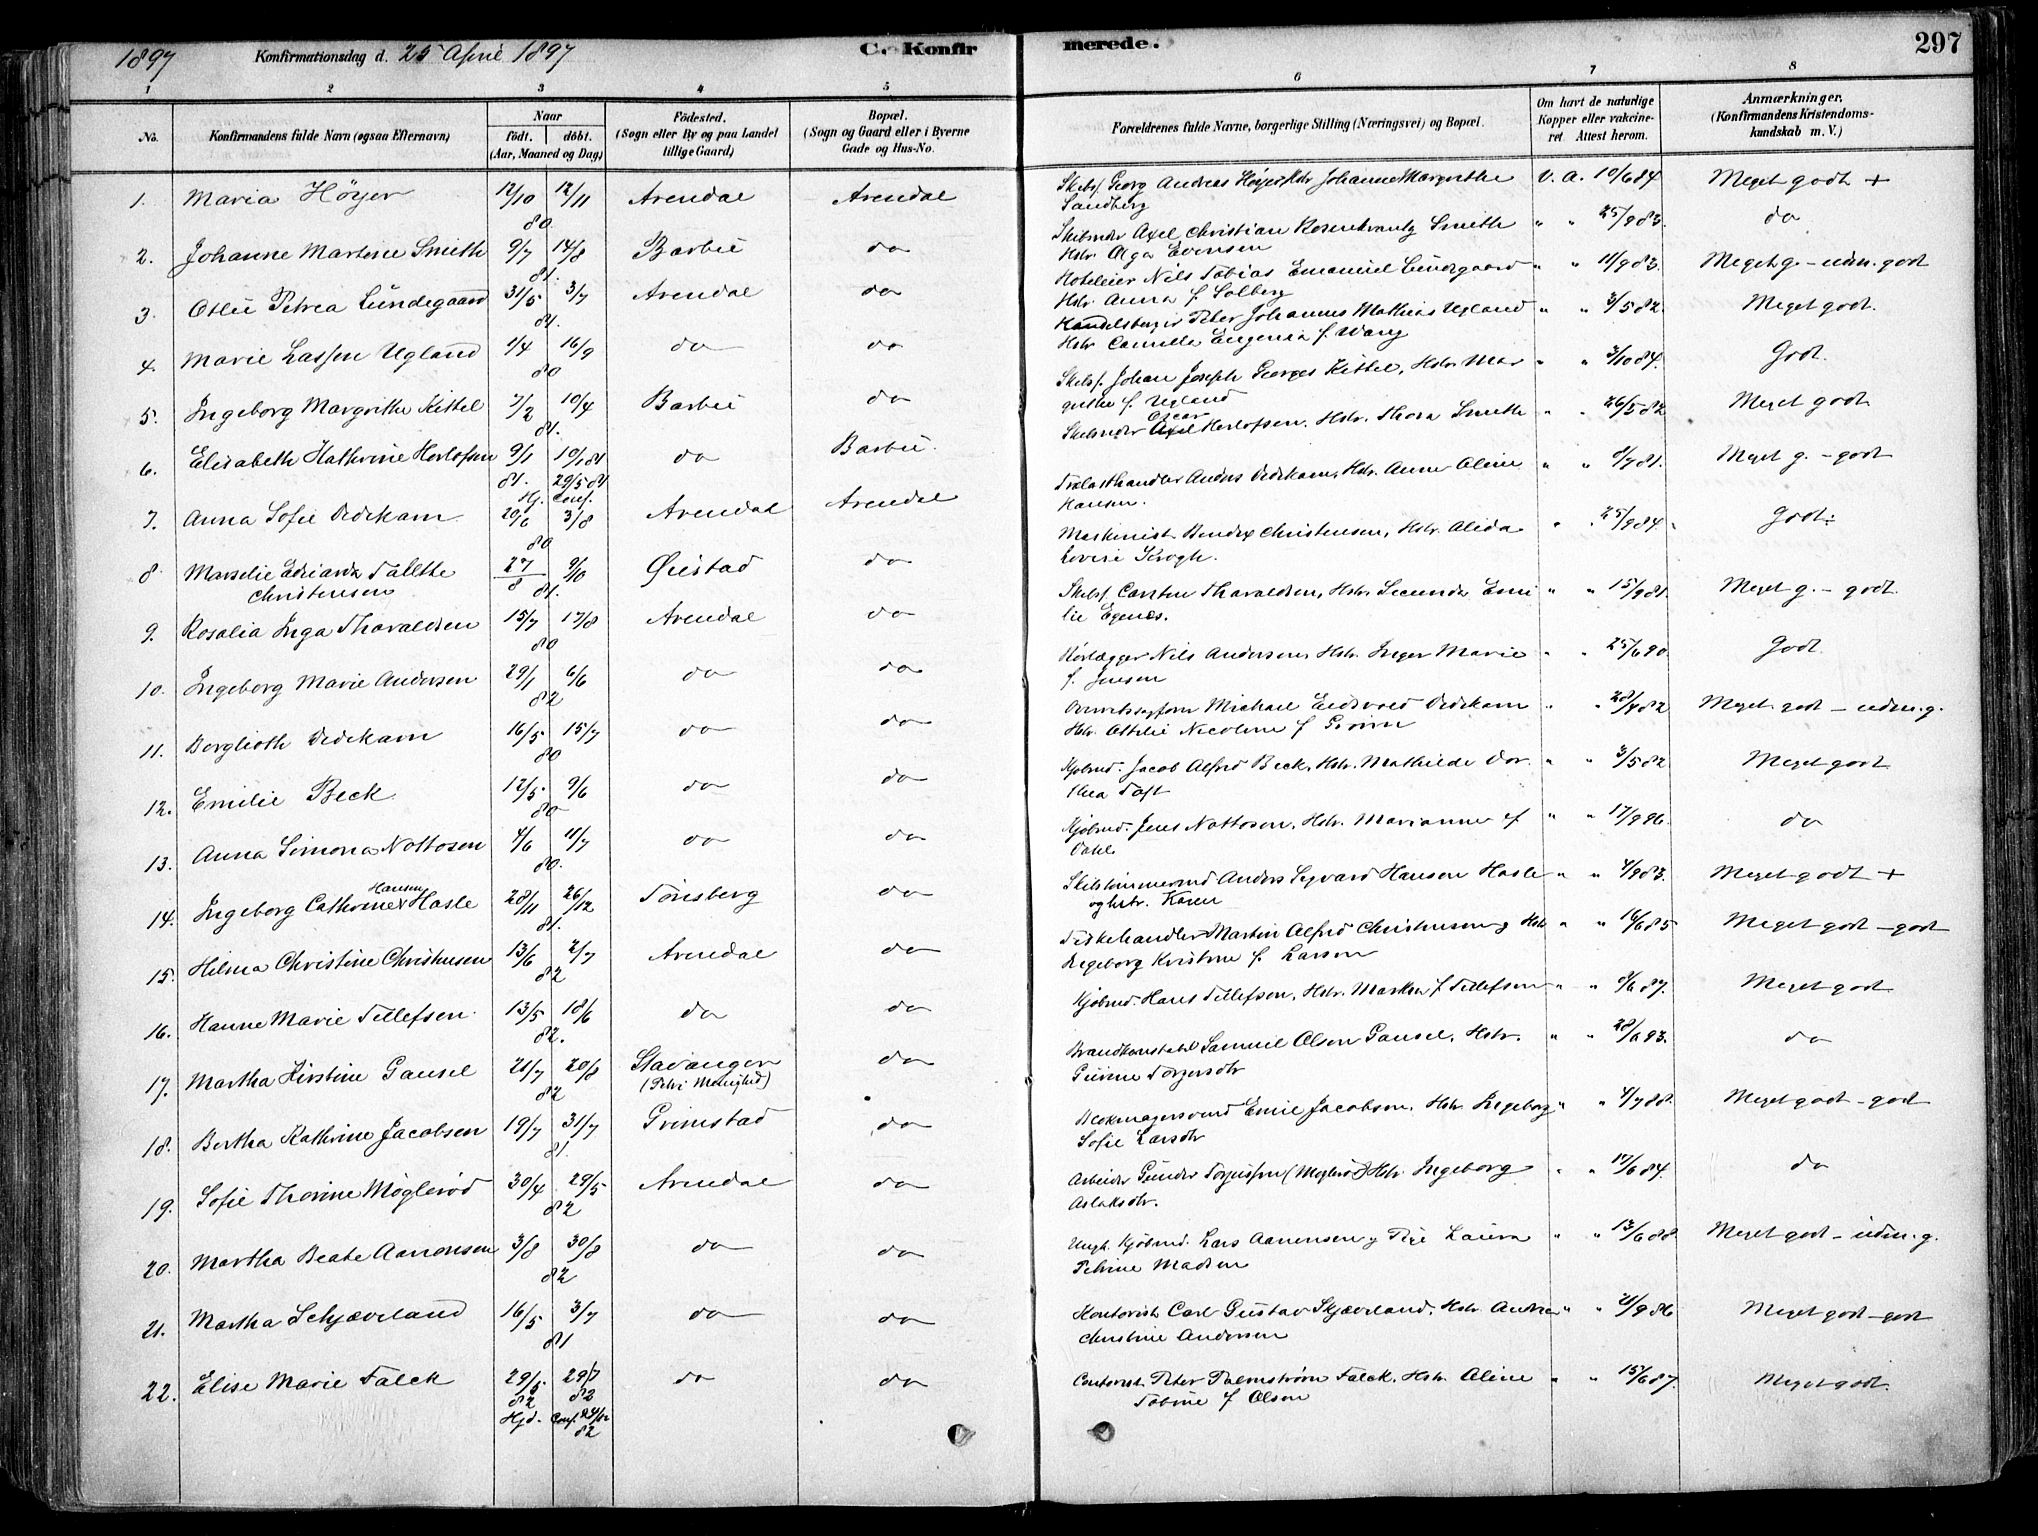 1897 Konfirmationsdag d. 25 April 1897 C. Konfirmerede. 297
1 2 3 4 5 6 7 8
No. Konfirmandens fulde Navn (ogsaa Efternavn) Naar født. døbt. (Aar, Maaned og Dag) Fødested. (Sogn eller By og paa Landet tillige Gaard) Bopæl. (Sogn og Gaard eller i Byerne Gade og Hus-No. Forældrenes fulde Navne, borgerlige Stilling (Næringsvei) og Bopæl. Om havt de naturlige Kopper eller vakcineret. Attest herom. Anmærkninger. (Konfirmandens Kristendomskundskab m. V.)
1. Maria Höyer 12/10 12/11 80 Arendal Arendal Skibsf. Georg Andreas Höyer, Hstr. Johanne Margrethe V. A. 10/6 84 Meget godt +
Sandberg
2. Johanne Martine Smith 9/7 14/8 81. Barbu do Skibsreder Axel Christian Rosenkrantz Smith " " 25/9 83. do
Hstr. Olga Evensen
3. Otlie Petrea Lundegaard 31/5 3/7 81. Arendal do Hoteleier Nils Tobias Emanuel Lundegaard " " 11/9 83. Meget g. – udm. godt
Hstr. Anna f. Solberg
4. Marie Lassen Ugland 1/4 16/9 80 do do Handelsborger Peter Johannes Mathias Ugland " " 3/5 82. Meget godt.
Hstr. Camilla Eugenia f. Wang
5. Ingeborg Margrithe Kittel 7/2 10/4 81. Barbu do Skibsf. Johan Joseph Georges Kittel, Hstr. Mar " " 3/10 84. Godt.
grethe f. Ugland
6. Elisabeth Kathrine Herlofsen 9/1 81. 10/1 81 29/5 81 Hj. Conf. do Barbu. Skibsreder Oscar Herlofsen. Hstr. Thora Smith " " 26/5 82 Meget godt
7. Anna Sofie Dedekam 20/6 3/8 80 Arendal Arendal Trælasthandler Anders Dedekam, Hstr. Anne Oline " " 8/7 81. Meget g. – godt
Hansen.
8. Marselie Edvarda Tallethe Christensen 27/8 9/10 81. Øiestad do Maskinist Bendix Christensen, Hstr. Alida " " 25/9 84. Godt.
Lovise Krogh.
9. Rosalia Inga Tharaldsen 15/7 17/8 80 Arendal do Skibsf. Carsten Tharaldsen, Hstr. Secunda Emi " " 15/9 81. Meget g. – godt.
lie Egenæs.
10. Ingeborg Marie Andersen 29/1 6/6 82 do do Rørlægger Nils Andersen, Hstr. Inger Marie " " 25/6 90. Godt
f. Jensen
11. Borglioth Dedekam 16/5 15/7 80 do do Overretssagförer Michael Eidsvold Dedekam " " 28/4 82 Meget godt – udm. g.
Hstr. Ottilie Nicoline f
12. Emilie Beck 12/5 9/6 80 do do Kjøbmd. Jacob Alfred Beck, Hstr. Mathilde Dor " " 3/5 82 Meget godt
thea Toft
13. Anna Simona Nottosen 4/6 11/7 80. do do Kjøbmd. Jens Nottosen, Hstr. Marianne f " " 17/9 96. do
Dahl.
14. Ingeborg Cathrine Hansen Hasle 28/11 26/12 81. Tönsberg do Skibstømmermd Anders Sigvard Hansen Hasle " " 4/9 83. Meget godt +
og hstr. Karen
15. Hilma Christine Christensen 13/6 2/7 82 Arendal do Fiskehandler Martin Alfred Christensen, Hstr " " 16/6 85 Meget godt – godt
Ingeborg Kristine f. Larsen
16. Hanne Marie Tellefsen 13/5 18/6 82. do do Kjøbmd. Hans Tellefsen, Hstr. Martha f Tellefsen " " 8/6 87. Meget godt
17. Martha Kirstine Gausel 21/7 20/8 82 Stavanger (Petri Menighed) do Brandkonstabel Samuel Olsen Gausel, Hstr. " " 28/6 93. do
Gurine Torgersdtr
18. Bertha Kathrine Jacobsen 19/7 31/7 81. Grimstad do Blokmagersvend Emil Jacobsen, Hstr. Ingeborg " " 4/7 88. Meget godt – godt
Sofie Larsdtr
19. Sofie Thorine Möglerød 30/4 29/5 82 Arendal do Arbeider Gunder Torjussen (Møglerød) Hstr. Ingeborg " " 17/6 84. do
Aslaksdtr.
20. Martha Beate Aanonsen 3/8 30/8 82 do do Ungk. Kjøbmd. Lars Aanensen og Pige Laura " " 13/6 88 Meget godt – udm. g.
Petrine Madsen
21. Martha Schjæverland 16/5 3/7 81 do do Kontorist Carl Gustav Skjæverland, Hstr. Andrea " " 4/9 86 Meget godt – godt
Christine Andersen
22. Elise Marie Falck 29/5 82 29/7 82 Hjd. Conf. 82 do do Contorist. Peter Palmstrøm Falck, Hstr. Aline " " 15/6 87. Meget godt.
Tobine f Olsen